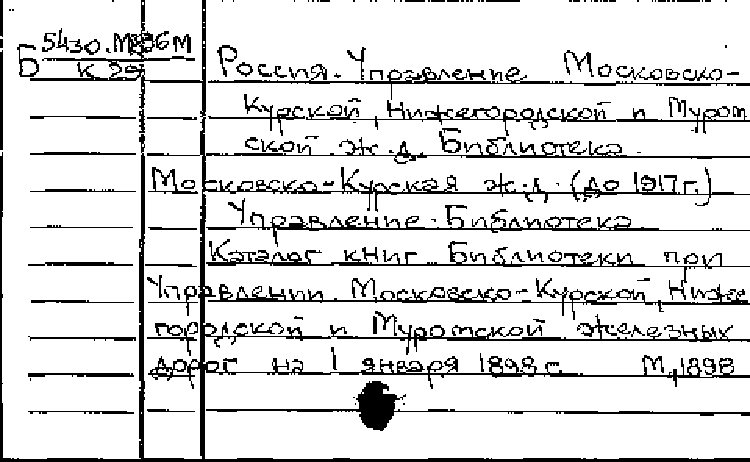 5430.М886М
Б К 29 Россия. Управление Московско-
Курской, Нижегородской и Муром
ской ж.д. Библиотека.
Московско-Курская ж.д. (до 1917г.)
Управление. Библиотека
Каталог книг Библиотеки при
Управлении Московско-Курской, Ниже
городской и Муромской железных
дорог на 1 января 1898 г. М, 1898